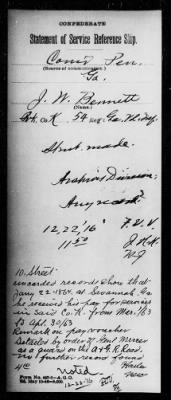 CONFEDERATE
Statement of Service Reference Slip.
Com'r Pen.
Ga.
(Source of communication.)
J. W. Bennett
(Name.)
Co. K 54 Reg. Ga. Vol. Inf.
Stmt. made.
Archives Division:
Any name?
12,22,'16 F. U. V.
11 50
10, Street:
records show that
Jany 22 1864, at Savannah, Ga.
he received his pay for service
in said Co. K. from Mar. 1/63
to Apl. 30/63
Remark on pay voucher
Detailed by order of Genl Mercer
as a guard on the A & G. R. Road.
no further record found
noted
12-22-16